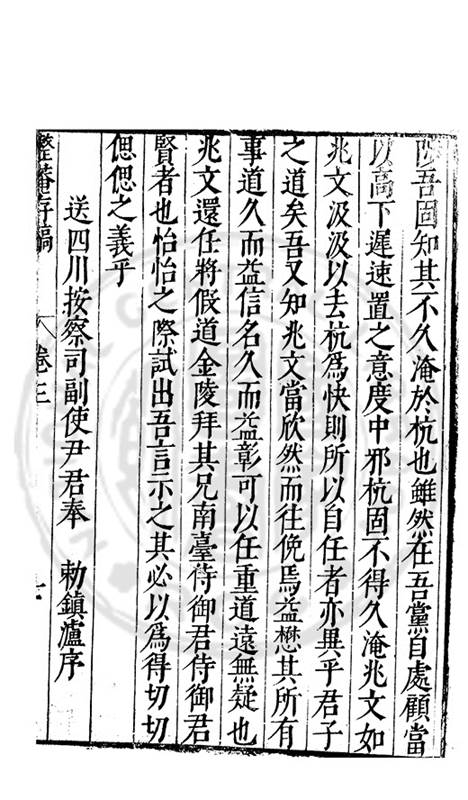 陟吾固知其不久淹於杭也雖然在吾黨自處顧當
以高下遲速置之意度中邪杭固不得久淹兆文如
兆文汲汲以去杭爲快則所以自任者亦異乎君子
之道矣吾又知兆文當欣然而往俛焉益懋其所有
事道久而益信名久而益彰可以任重道遠無疑也
兆文還任將假道金陵拜其兄南臺侍御君侍御君
賢者也怡怡之際試出吾言示之其必以爲得切切
偲偲之義乎
送四川按察司副使尹君奉 勅鎮瀘序
整菴存稿 卷三